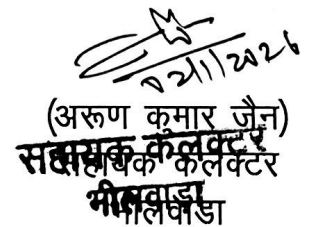 02/11/2026
(अरूण कुमार जैन)
सहायक कलक्टर
सहायक कलक्टर
भीलवाड़ा
भीलवाडा